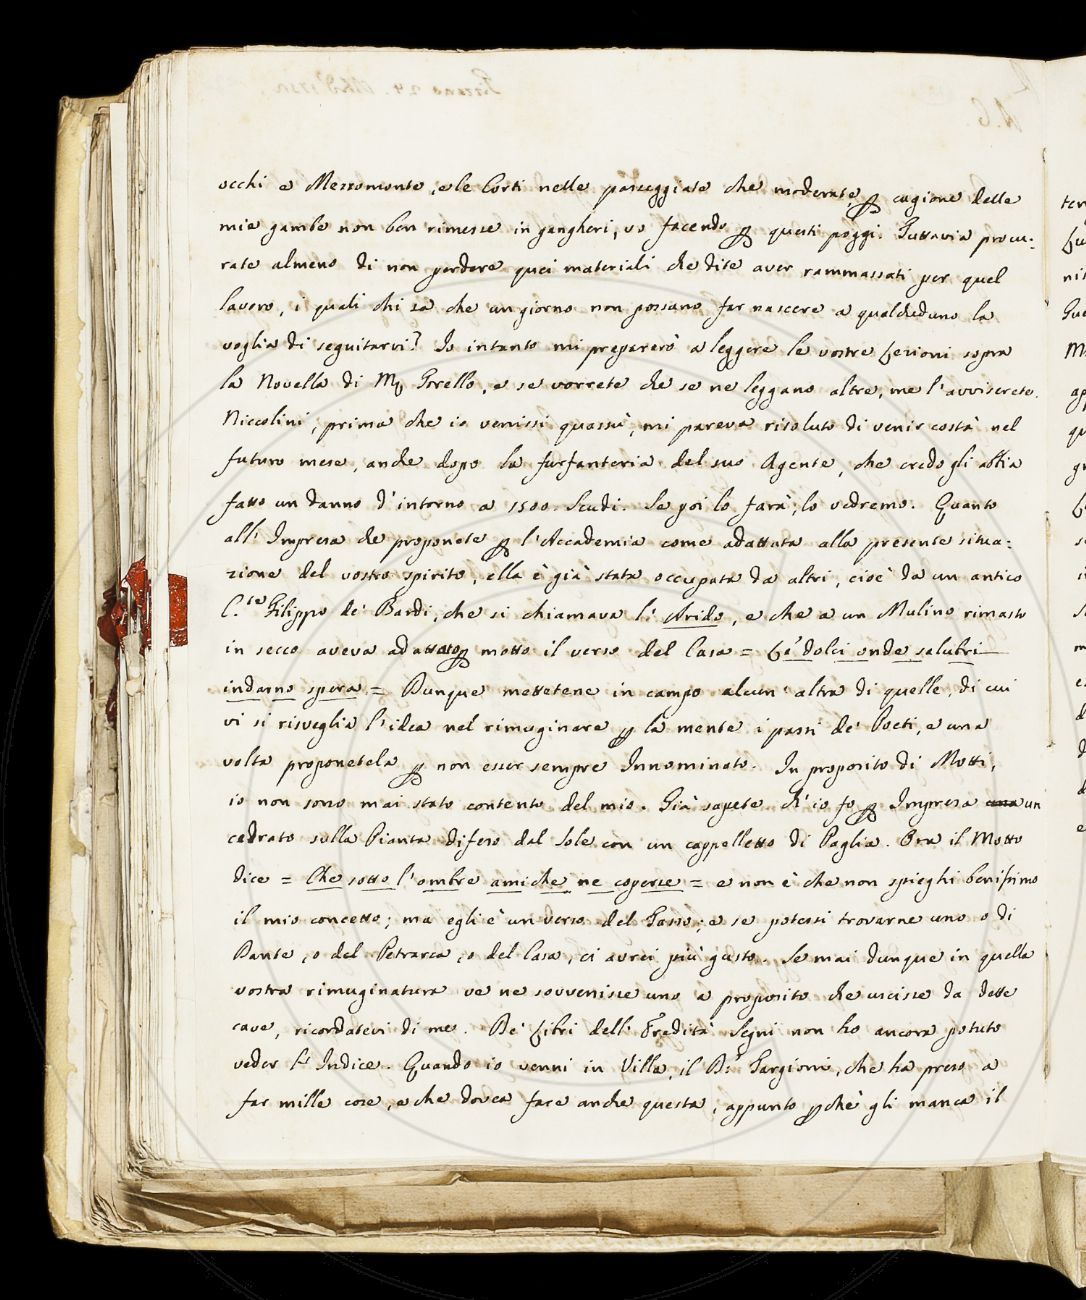 occhi e Mezzomonte, e le Corti nelle passeggiate che moderate, p cagione delle
mie gambe non ben rimesse in gangheri, vo facendo p questi poggi. Tuttavia procu:
rate almeno di non perdere quei materiali che dite aver rammassati per quel
lavoro, i quali chi sa che un giorno non possano far nascere a qualcheduno la
voglia di seguitarvi? Io intanto mi preparerò a leggere le vostre Lezioni sopra
la Novella di Mʳ Gorello, e se vorrete che se ne leggano altre, me l'avviserete.
Niccolini, prima che io venissi quassù, mi pareva risoluto di venir costà nel
futuro mese, anche dopo la furfanteria del suo Agente, che credo gli abbia
fatto un danno d'intorno a 1500. Scudi. Se poi lo farà, lo vedremo. Quanto
all'Impresa che proponete p l'Accademia come adattata alla presente situa:
zione del vostro spirito, ella è già stata occupata da altri, cioè da un antico
C.te Filippo de' Bardi, che si chiamava l'Arido, e che a un Mulino rimasto
in secco aveva adattato p motto il verso del Casa = Le dolci onde salubri
indarno spera = Dunque mettetene in campo alcun'altra di quelle, di cui
vi si risveglia l'idea nel rimuginare p la mente i passi de' Poeti, e una
volta proponetela p non esser sempre Innominato. In proposito di Motti,
io non sono mai stato contento del mio. Già sapete ch'io fo p Impresa una un
cedrato sulla Pianta difeso dal Sole con un cappelletto di Paglia. Ora il Motto
dice = Che sotto l'ombre amiche ne coperse = e non è che non spieghi benissimo
il mio concetto; ma egli è un verso del Tasso: e se potessi trovarne uno o di
Dante, o del Petrarca, o del Casa, ci avrei più gusto. Se mai dunque in quella
vostra rimuginatura ve ne sovvenisse uno a proposito che uscisse da dette
cave, ricordatevi di me. De' Libri dell'Eredità Segni non ho ancora potuto
veder l'Indice. Quando io venni in Villa, il D.r Targioni, che ha preso a
far mille cose, e che dovea fare anche questa, appunto pchè gli manca il